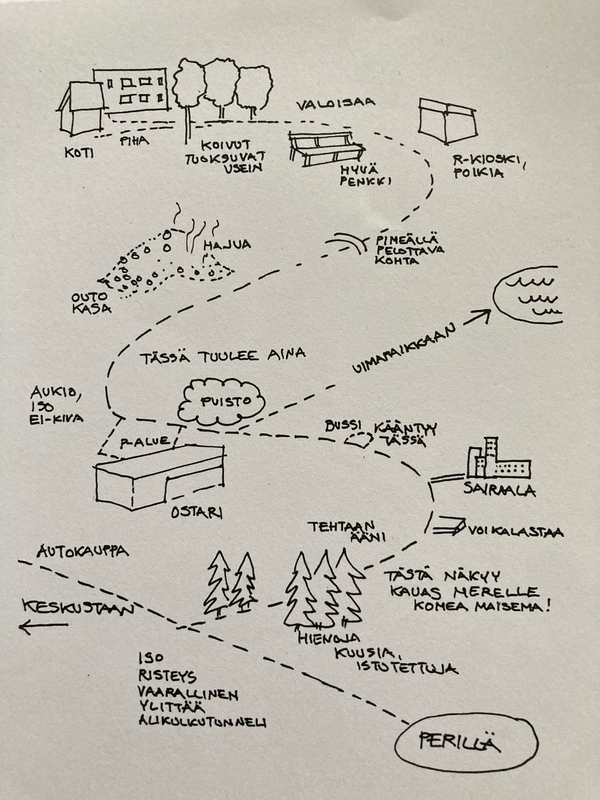 VALOISAA
KOTI
PIHA
KOIVUT
TUOKSUVAT
USEIN
HYVÄ
PENKKI
R-KIOSKI,
POIKIA
PIMEÄLLÄ
PELOTTAVA
KOHTA
HAJUA
OUTO
KASA
TÄSSÄ TUULEE AINA
UIMAPAIKKAAN
AUKIO,
ISO
EI-KIVA
PUISTO
P-ALUE
BUSSI KÄÄNTYY
TÄSSÄ
OSTARI
SAIRAALA
TEHTAAN
ÄÄNI
VOI KALASTAA
AUTOKAUPPA
TÄSTÄ NÄKYY
KAUAS MERELLE
KOMEA MAISEMA!
KESKUSTAAN
HIENOJA
KUUSIA,
ISTUTETTUJA
ISO
RISTEYS
VAARALLINEN
YLITTÄÄ
ALIKULKUTUNNELI
PERILLÄ